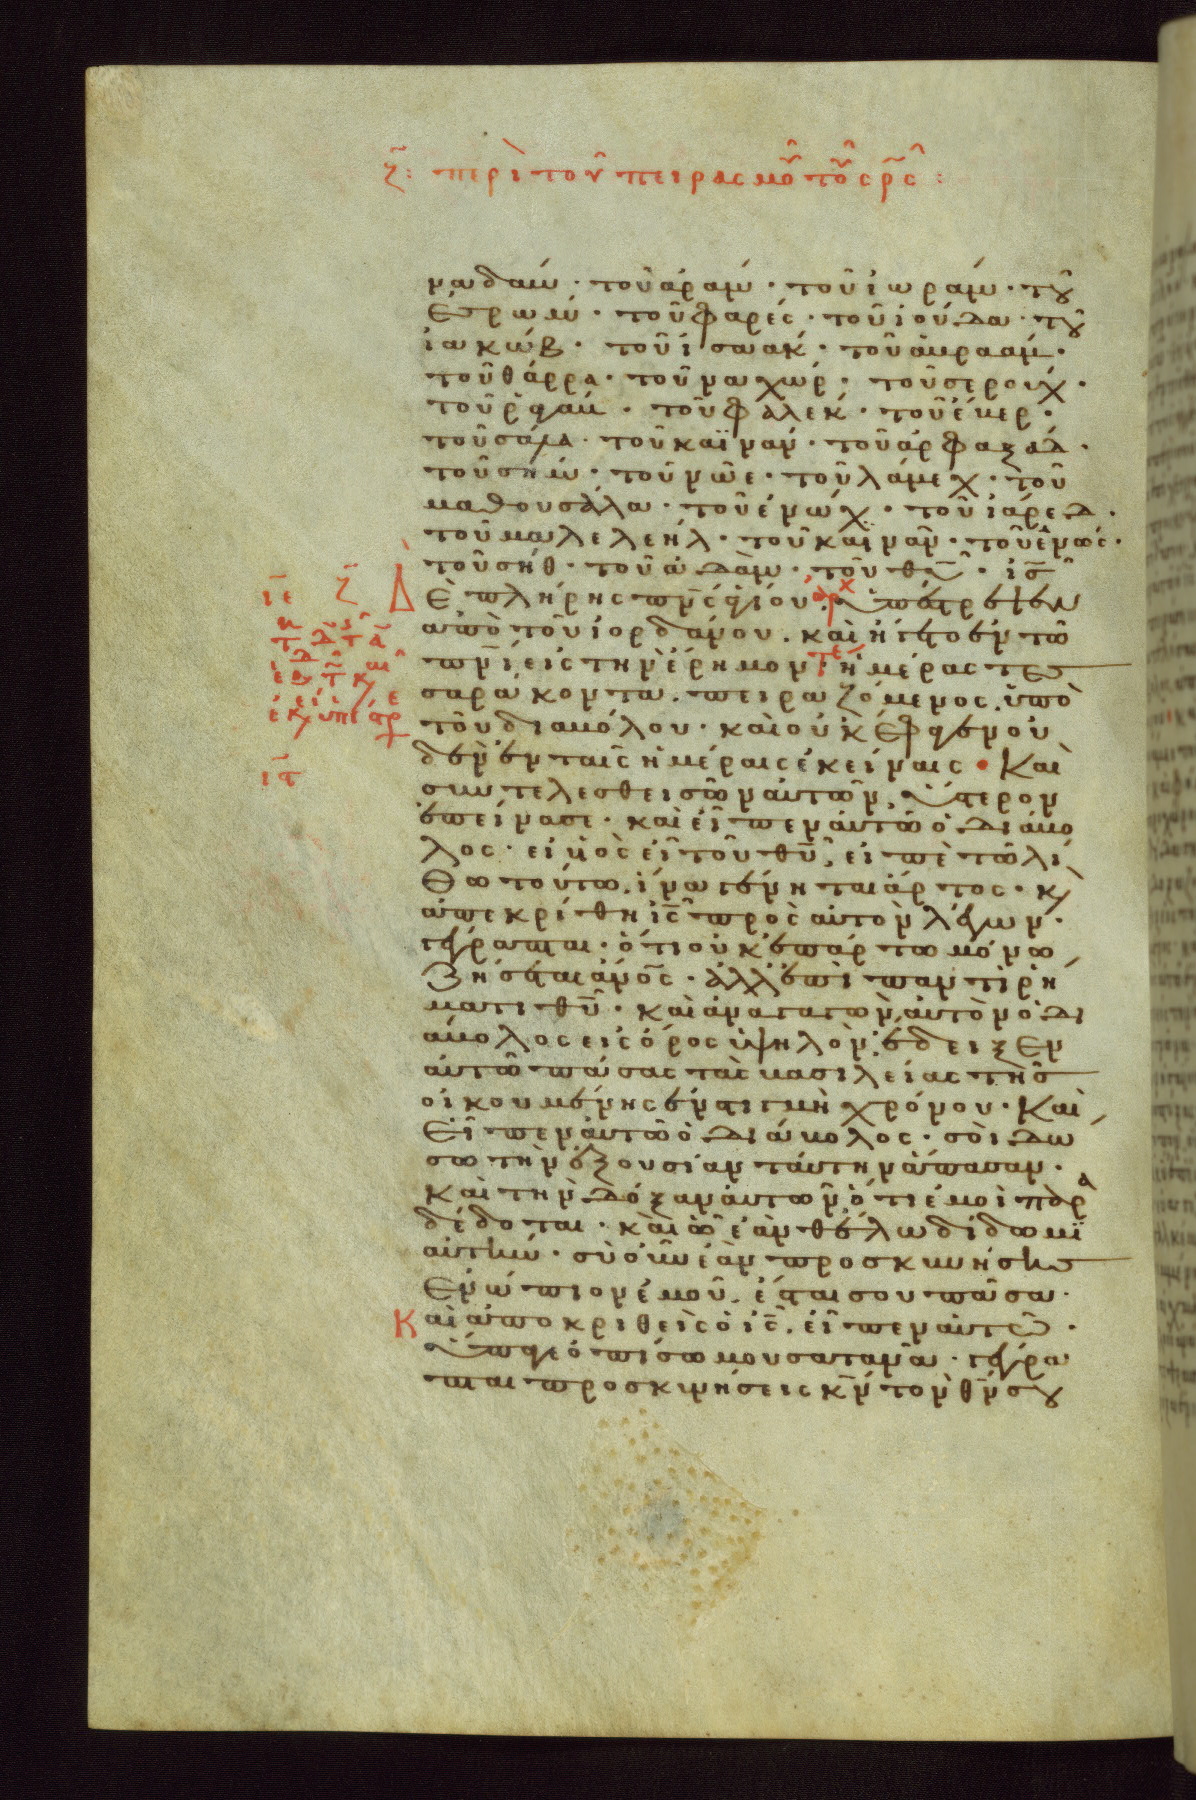 ζ̅: περὶ τοῦ πειρασμοῦ τοῦ σρ̅ς :
ναδάμ · τοῦ ἀράμ · τοῦ ἰωράμ · τοῦ
Ἐσρώμ · τοῦ φαρές · τοῦ ἰούδα · τοῦ
ἰακώβ · τοῦ ἰσαάκ · τοῦ ἀβραάμ ·
τοῦ θάρρα · τοῦ ναχώρ · τοῦ σερούχ ·
τοῦ ῥαγαῦ · τοῦ φαλέκ · τοῦ ἔβερ ·
τοῦ σάλα · τοῦ καϊνάν · τοῦ ἀρφαξάδ ·
τοῦ σήμ · τοῦ νῶε · τοῦ λάμεχ · τοῦ
μαθουσάλα · τοῦ ἐνώχ · τοῦ ἰάρεδ ·
τοῦ μαλελεήλ · τοῦ καϊνάν · τοῦ ἐνώς ·
τοῦ σήθ · τοῦ ἀδάμ · τοῦ θυ̅ · ις̅
ιε̅ ζ̅ Δ
Ὲ πλήρης πν̅ς ἁγίου ὑπέστρεψεν
ἀπὸ τοῦ ἰορδάνου · καὶ ἤγετο ἐν τῶ
πν̅ι εἰς τὴν ἔρημον · ἡμέρας τεσ
σαράκοντα · πειραζόμενος ὑπὸ
τοῦ διαβόλου · καὶ οὐκ ἔφαγεν οὐ
δὲν ἐν ταῖς ἡμέραις ἐκείναις · Καὶ
ις̅
συντελεσθεισῶν αὐτῶν, ὕστερον
ἐπείνασε · καὶ εἶπεν αὐτῶ ὁ διάβο
λος · εἰ υἱὸς εἶ τοῦ θυ̅, εἰπὲ τῶ λί
Θω τούτω, ἵνα γένηται ἄρτος · κὶ
ἀπεκρίθη ις̅ πρὸς αὐτὸν λέγων ·
γέγραπται · ὅτι οὐκ ἐπ ἄρτω μόνω
ζήσεται ἄνο̅ς · ἀλλ ἐπὶ παντὶ ῥή
ματι θυ̅ · καὶ ἀναγαγὼν αὐτὸν ὁ δι
άβολος εἰς ὄρος ὑψηλὸν, ἔδειξεν
αὐτῶ πάσας τὰς βασιλείας τῆς
οἰκουμένης ἐν στιγμῆ χρόνου · Καὶ
Εἶπεν αὐτῶ ὁ διάβολος · σοὶ δώ
σω τὴν ἐξουσίαν ταύτην ἅπασαν ·
καὶ τὴν δόξαν αὐτῶν ὅτι ἐμοὶ παρα
δέδοται · καὶ ὧ ἐὰν θέλω δίδωμι
αὐτήν · σὺ οὖν ἐὰν προσκυνήσης
Ἐνώπιον ἐμοῦ, ἔσται σου πᾶσα ·
Καὶ ἀποκριθεὶς ὁ ις̅, εἶπεν αὐτῶ ·
ὕπαγε ὀπίσω μου σατανᾶ · γέγρα
πται προσκυνήσεις κν̅ τὸν θν̅ σου